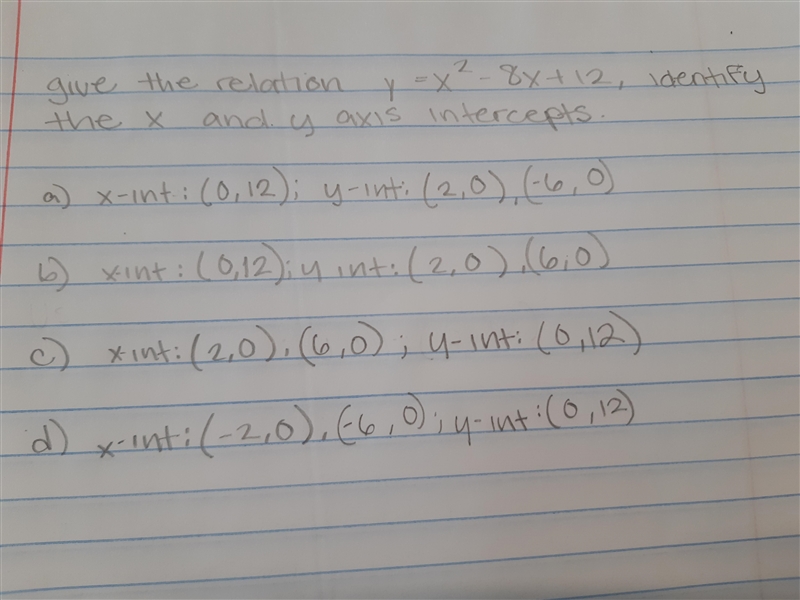 give the relation y = x² - 8x + 12, identify
the x and y axis intercepts.
a) x-int: (0,12); y-int: (2,0), (-6,0)
b) x-int: (0,12); y int: (2,0), (6,0)
c) x-int: (2,0), (6,0); y-int: (0,12)
d) x-int: (-2,0), (-6,0); y-int: (0,12)